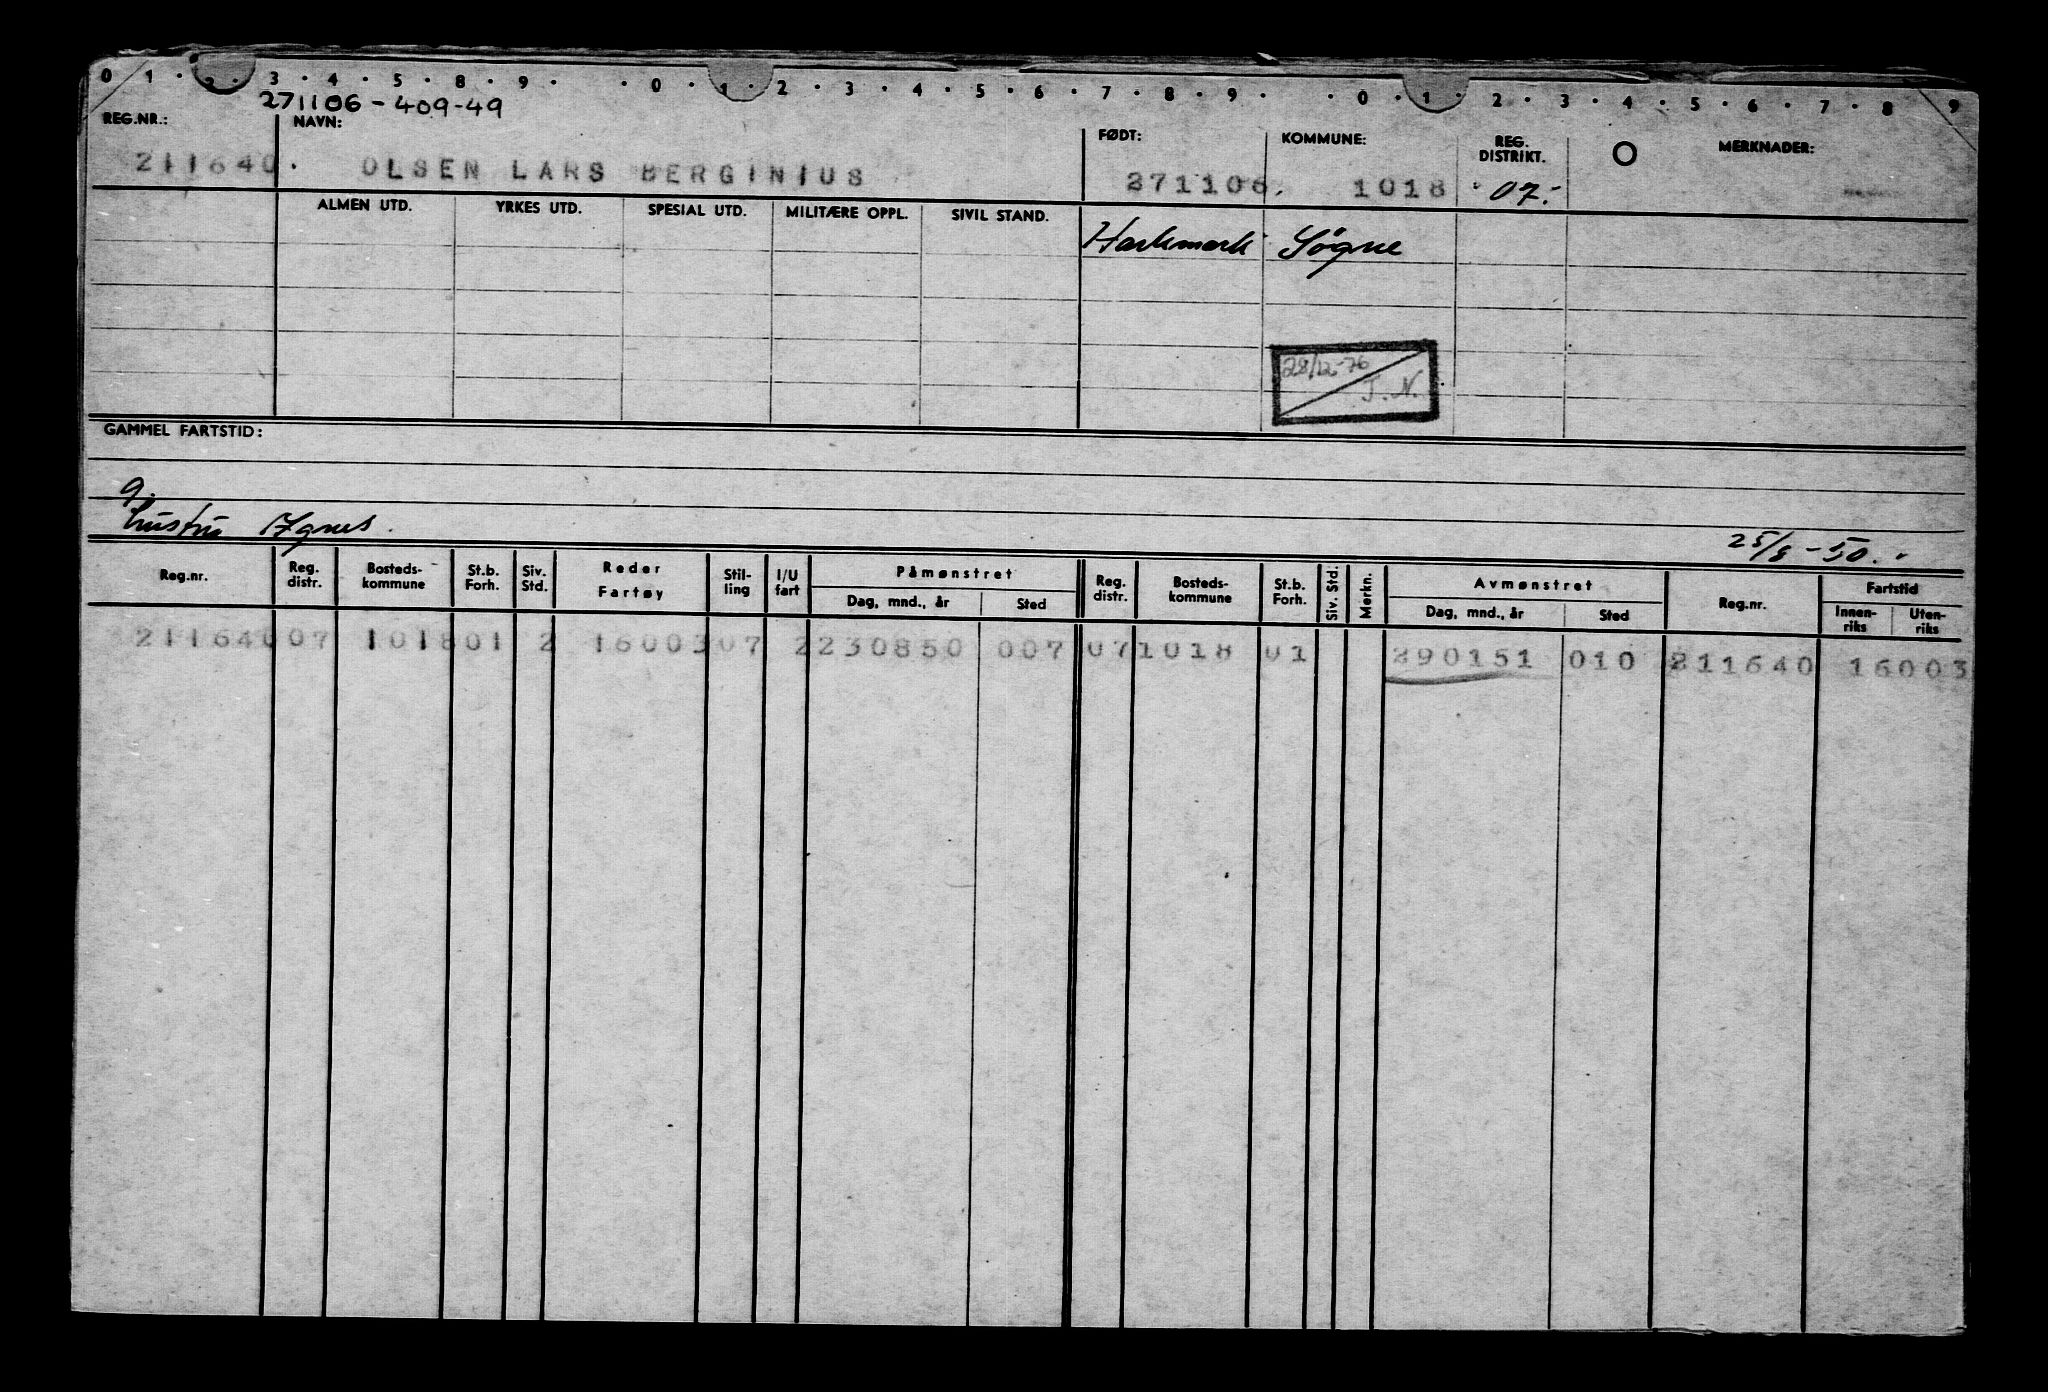 0 1 · 2 · 3 · 4 · 5 · 8 · 9 · · 0 · 1 · 2 · 3 · 4 · 5 · 6 · 7 · 8 · 9 · · 0 · 1 · 2 · 3 · 4 · 5 · 6 · 7 · 8 · 9
271106-409-49
REG.NR.: NAVN: FØDT: KOMMUNE: REG. DISTRIKT. O MERKNADER:
211640. OLSEN LARS BERGINIUS 271106. 1018 07.-
ALMEN UTD. YRKES UTD. SPESIAL UTD. MILITÆRE OPPL. SIVIL STAND. Harkmark Søgne
28/12-76
J.N.
GAMMEL FARTSTID:
g.
hustru Agnes. 25/8-50.
Reg.nr. Reg. distr. Bosteds-kommune St.b. Forh. Siv. Std. Reder Fartøy Stil-ling I/U fart Påmønstret Dag, mnd., år Sted Reg. distr. Bosteds-kommune St.b. Forh. Siv. Std. Merkn. Avmønstret Dag, mnd., år Sted Reg.nr. Fartstid Innen-riks Uten-riks
211640 07 1018 01 2 16003 07 2 230850 007 07 1018 01 290151 010 211640 16003